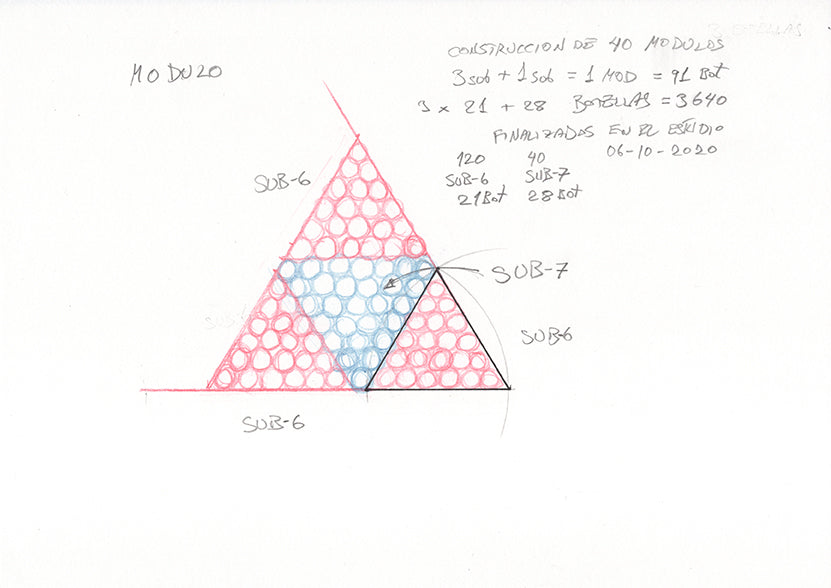 MODULO
CONSTRUCCION DE 40 MODULOS
3 SUB + 1 SUB = 1 MOD = 91 Bot
3 x 21 + 28 BOTELLAS = 3640
FINALIZADOS EN EL ESTUDIO
120 40 06-10-2020
SUB-6 SUB-7
21 Bot 28 Bot
SUB-6
SUB-7
SUB-6
SUB-6